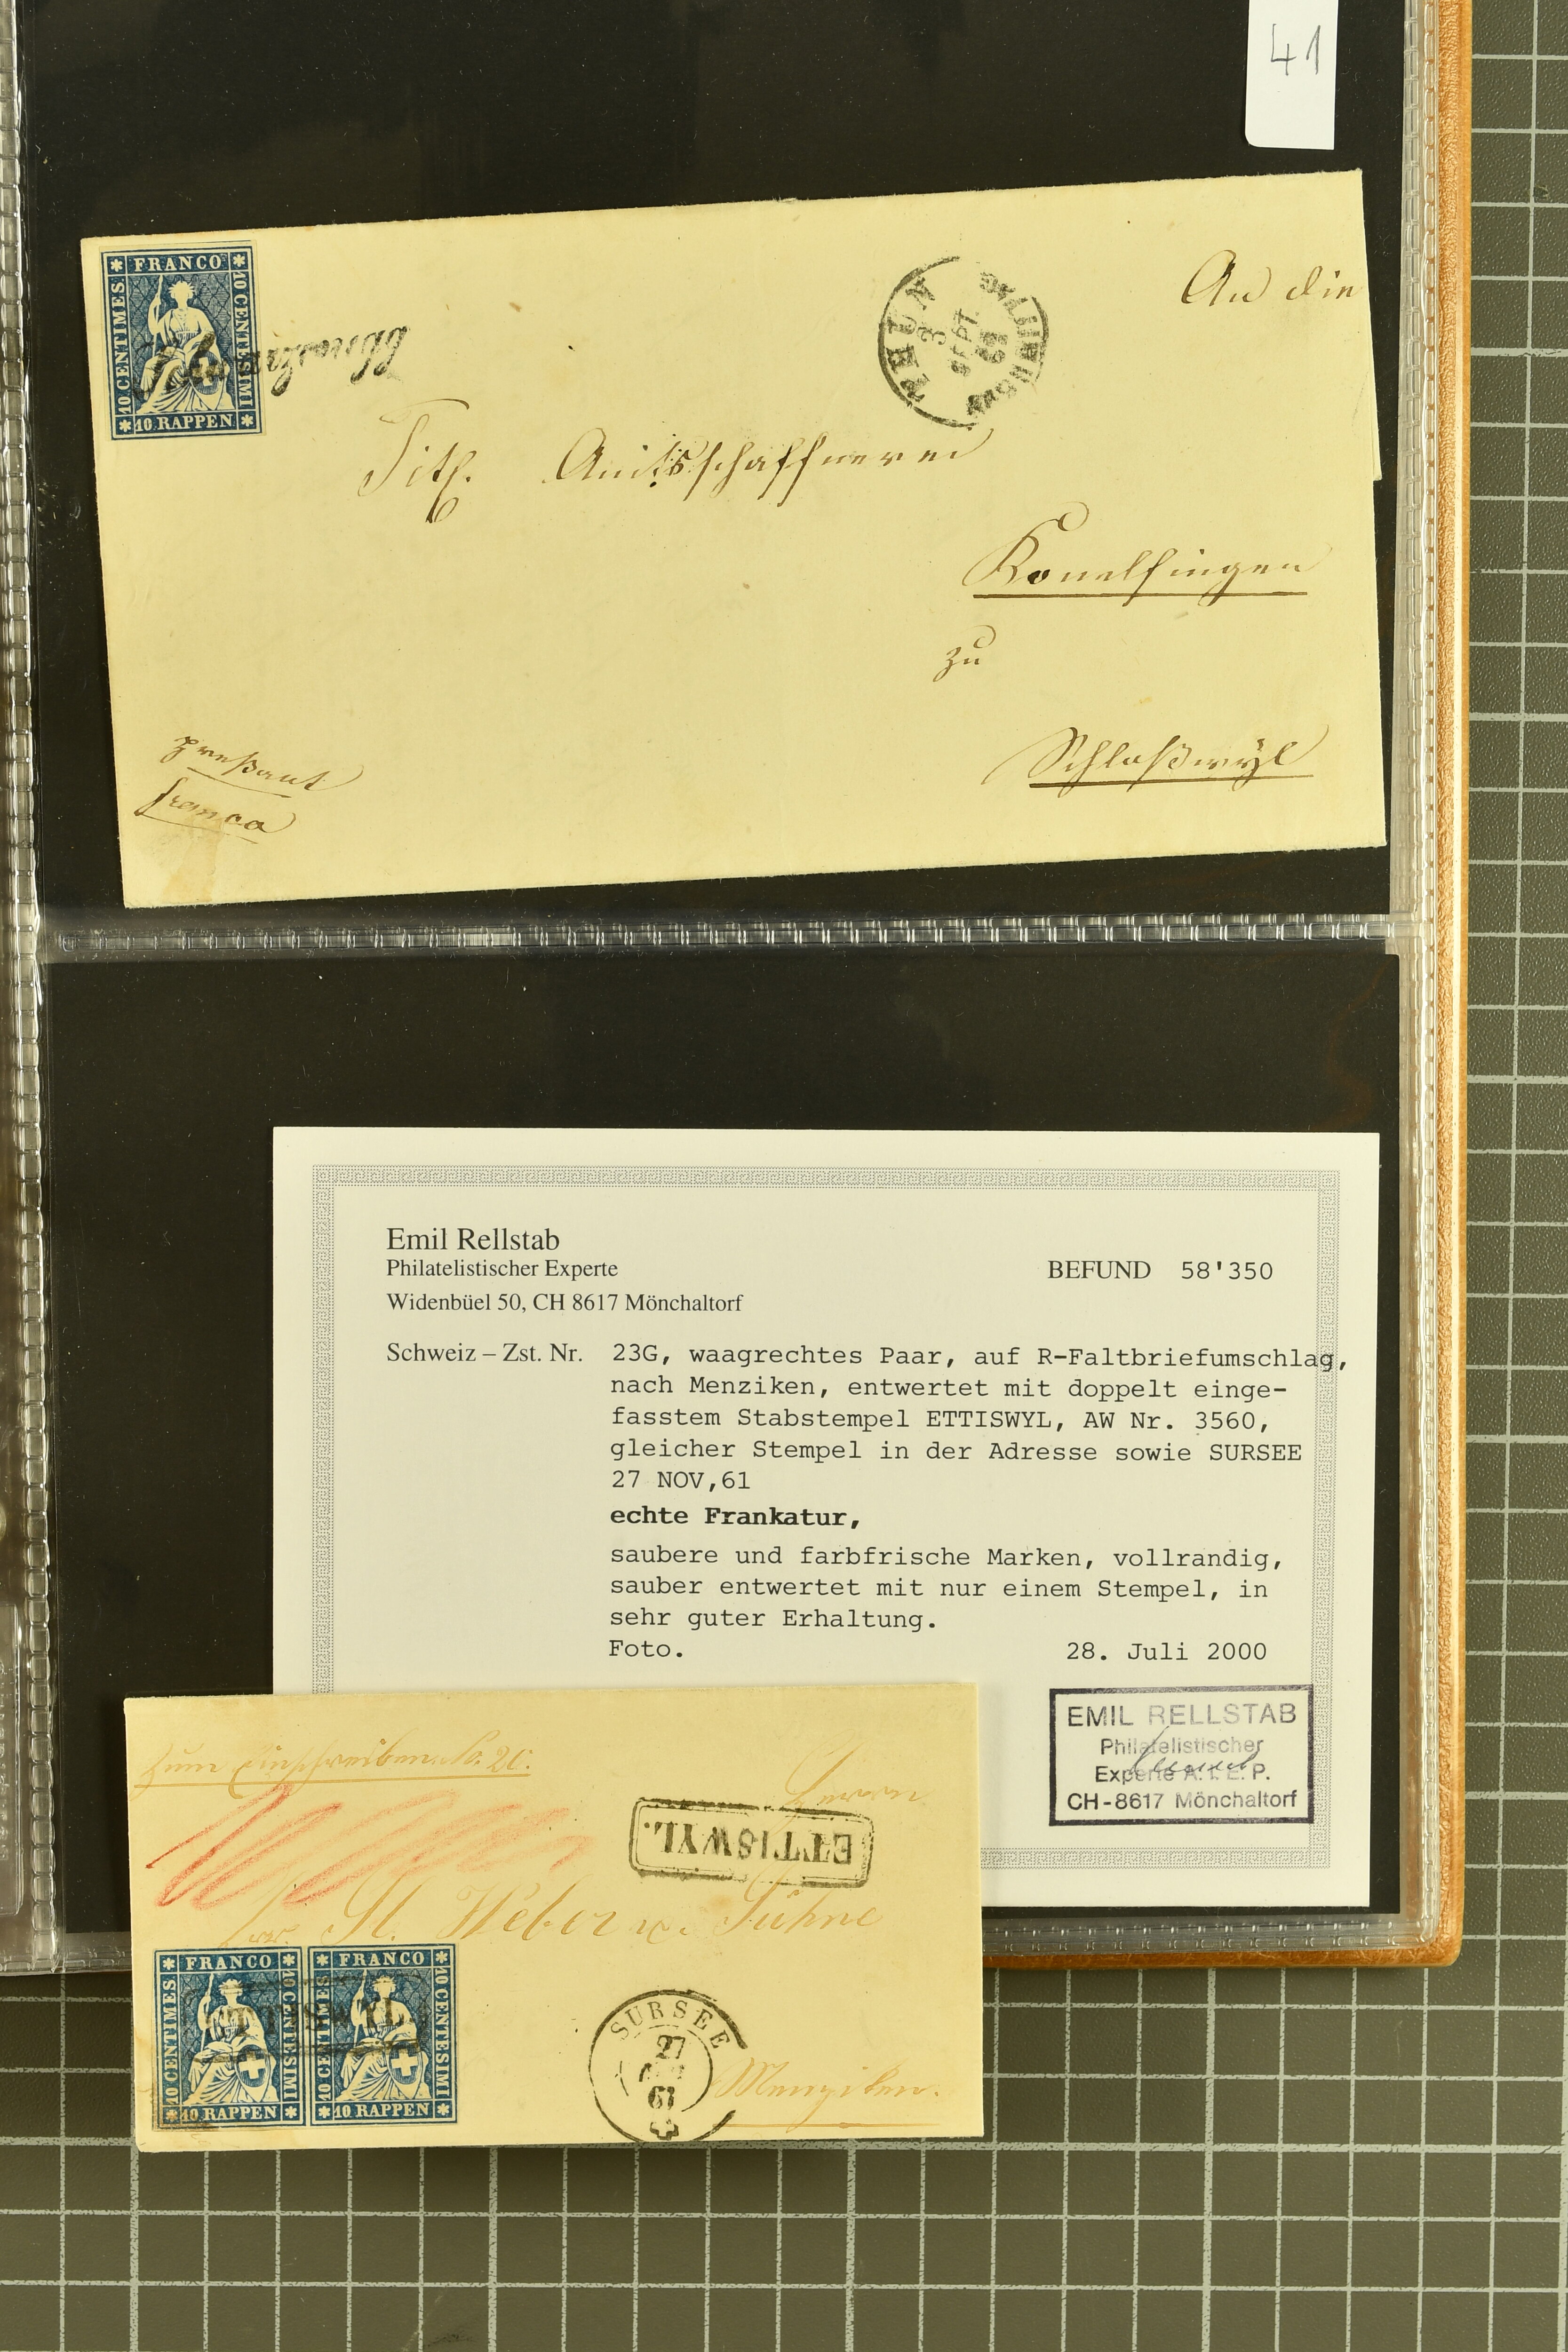 41
FRANCO
10 CENTIMES
10 CENTESIMI
10 RAPPEN
THUN
3
SEPT.
An die
Titl. Amtsschaffnerei
Konolfingen
zu
Schloßwyl
preßant
franco
Emil Rellstab
Philatelistischer Experte
Widenbüel 50, CH 8617 Mönchaltorf
BEFUND 58'350
Schweiz – Zst. Nr. 23G, waagrechtes Paar, auf R-Faltbriefumschlag,
nach Menziken, entwertet mit doppelt einge-
fasstem Stabstempel ETTISWYL, AW Nr. 3560,
gleicher Stempel in der Adresse sowie SURSEE
27 NOV,61
echte Frankatur,
saubere und farbfrische Marken, vollrandig,
sauber entwertet mit nur einem Stempel, in
sehr guter Erhaltung.
Foto. 28. Juli 2000
EMIL RELLSTAB
Philatelistischer
Experte A.I.E.P.
CH-8617 Mönchaltorf
Zum Einschreiben No. 20.
Herrn
ETTISWYL.
Weber u. Söhne
FRANCO FRANCO
10 CENTIMES 10 CENTESIMI 10 CENTIMES 10 CENTESIMI
ETTISWYL
10 RAPPEN 10 RAPPEN
SURSEE
27
61
Menziken.